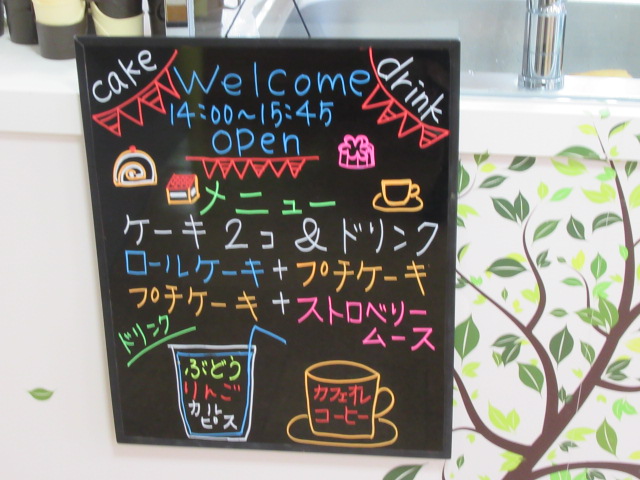 cake
Welcome
drink
14:00~15:45
open
メニュー
ケーキ2コ&ドリンク
ロールケーキ+プチケーキ
プチケーキ+ストロベリー
ムース
ドリンク
ぶどう
りんご
カル
ピス
カフェオレ
コーヒー